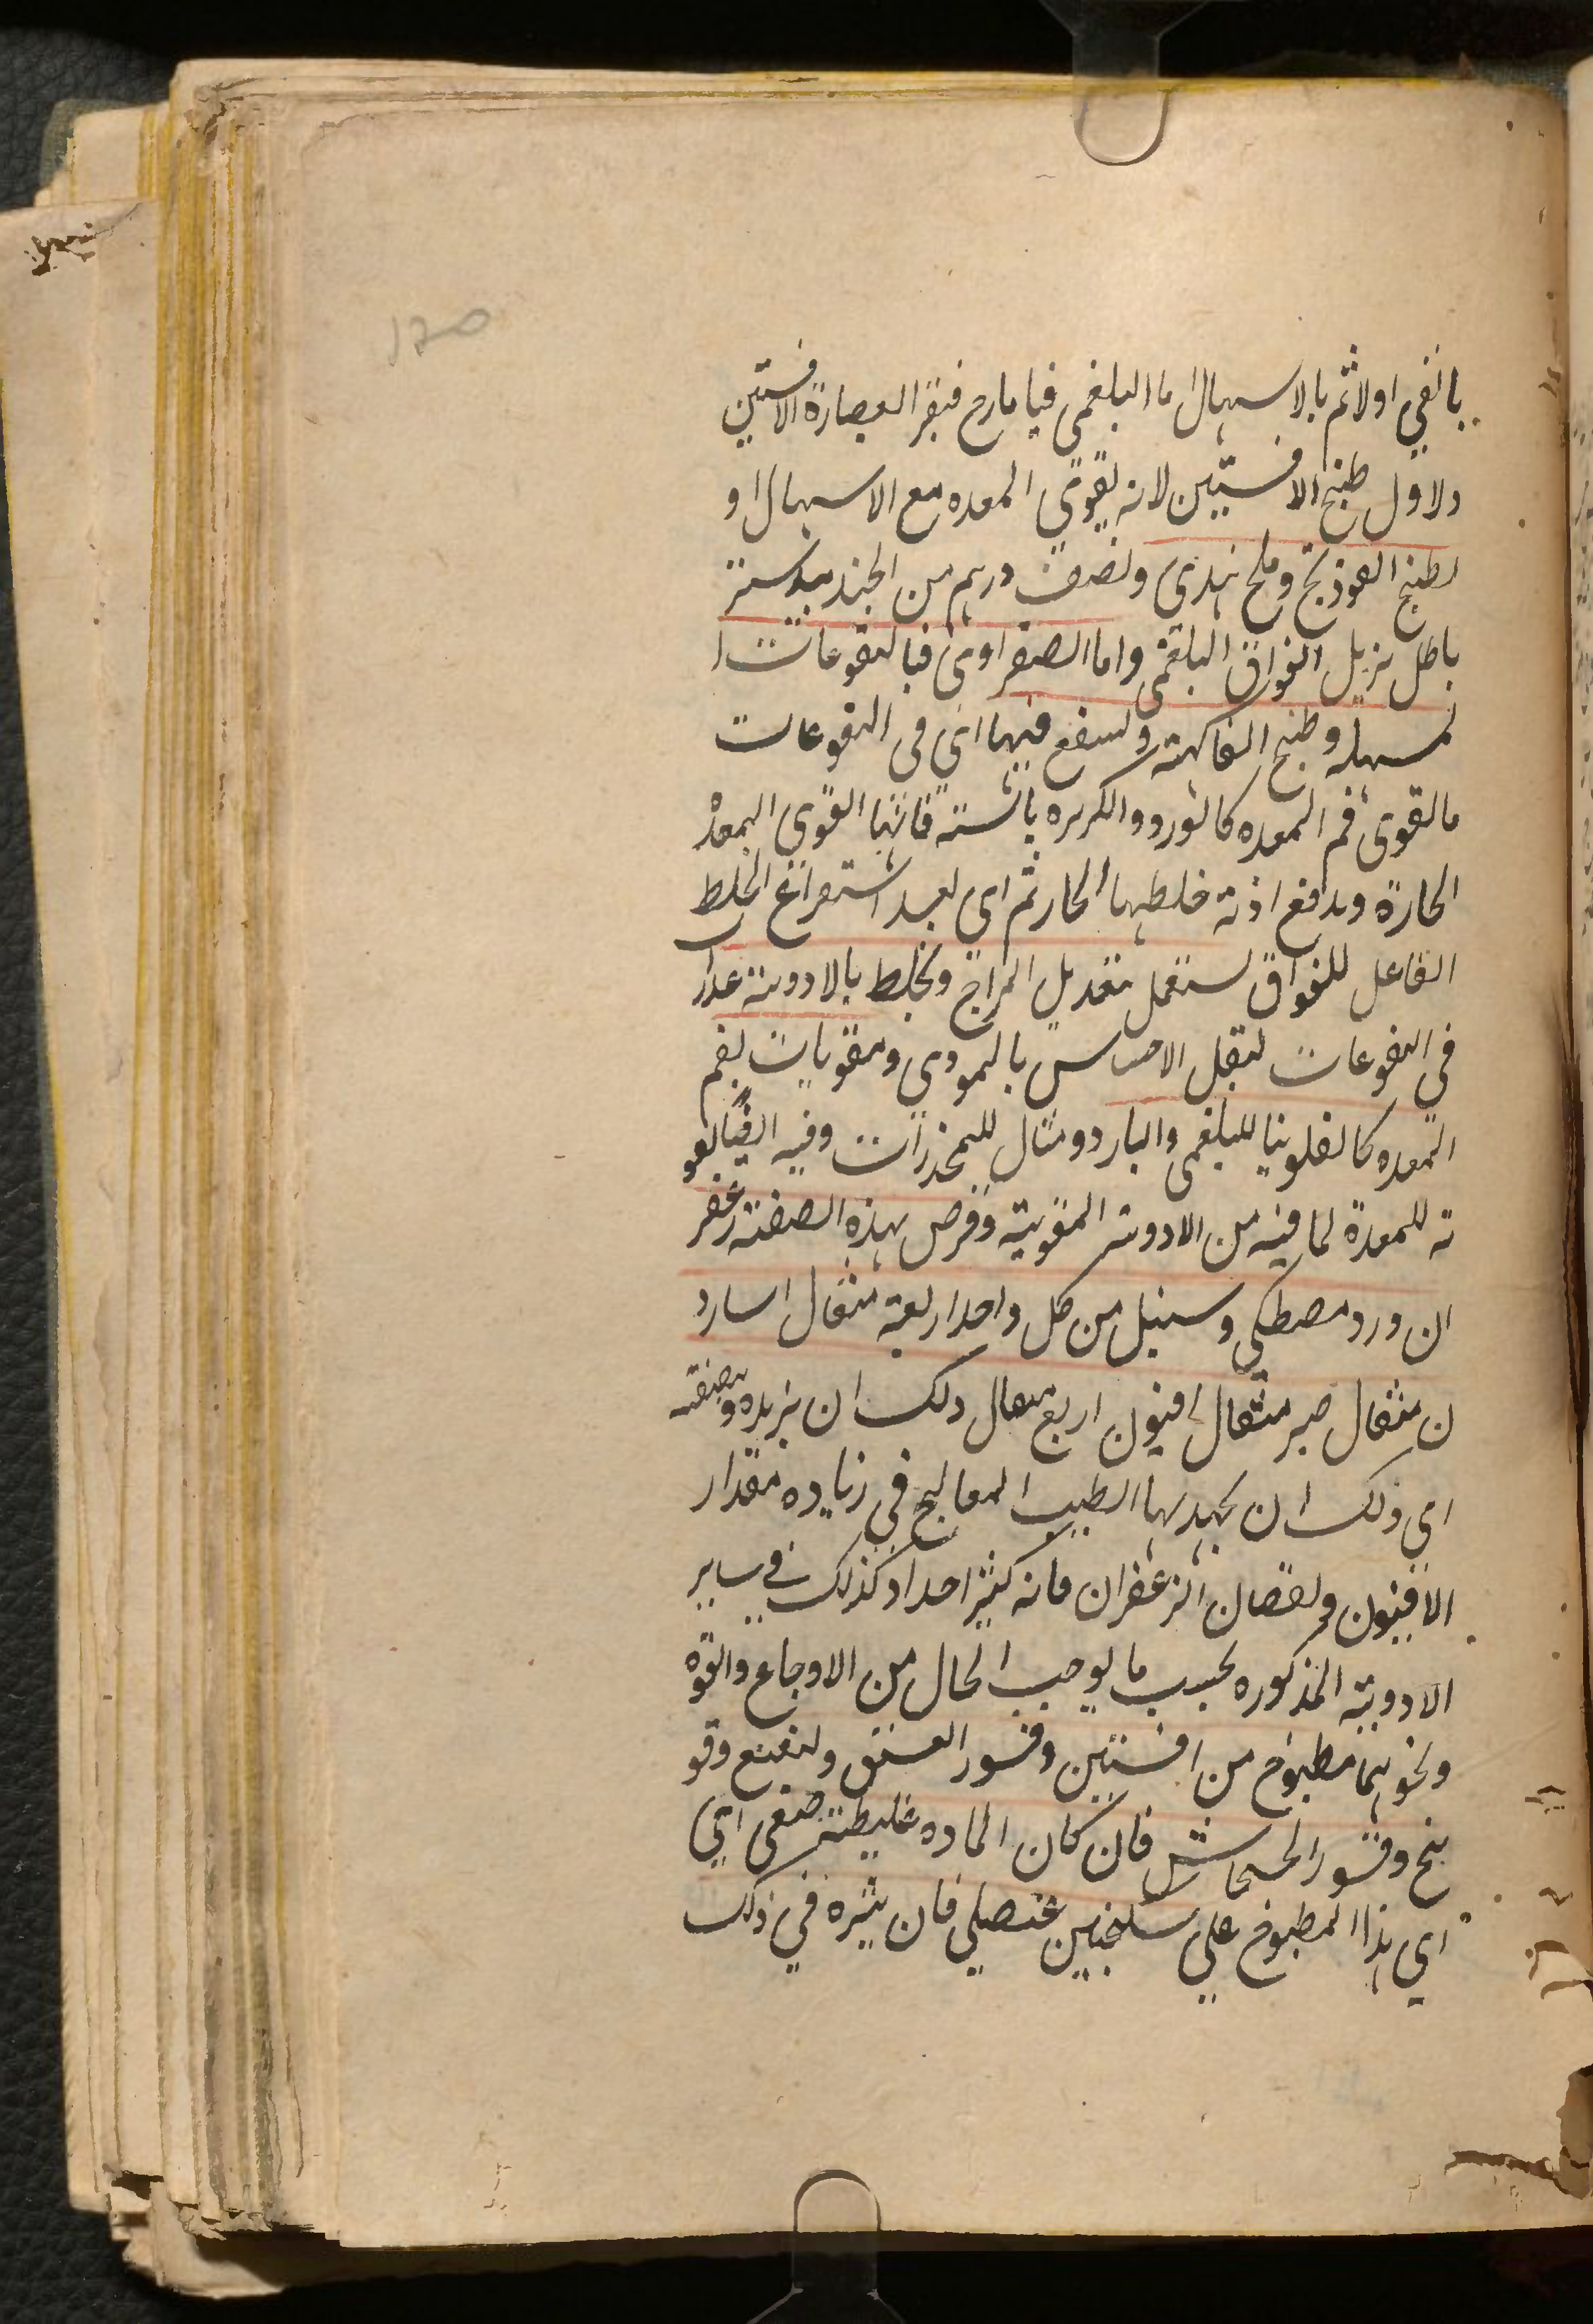 بالقي اولا ثم بالاسهال اما البلغمى فيامارج فيقرا العصارة الافستين
ولاول طبيخ الافستين لانه يقوى المعده مع الاسهال او
لطبخ الفوذنج وملح هندى ونصف درهم من الجندبيدستر
باطل يزيل الفواق البلغمى واما الصفراوى فبالنقوعات ا
لمسهله وطبخ الفاكهته وينفع فيها اي فى النقوعات
مايقوى فم المعده كالورد والكزبره يابسته فانها القوى المعده
الحارة ويدفع اذية خلطها الحار ثم اى بعد استفراغ الخلط
الفاعل للفواق يستعمل بتعديل المزاج ويخلط بالادوية عدرا
فى النقوعات ليقل الاحساس بالموذى ومقويات لفم
المعده كالفلونيا للبلغمى والبارد ومثال للمخدرات وفيه ايضا لقو
ته للمعدة لما فيه من الادوية المقويته وقرص بهذه الصفته زعفر
ان ورد مصطكى وسنبل من كل واحد اربعة مثقال اسارو
ن مثقال صبر مثقال افيون اربع مثقال ولك ان يزيده وينقصه
اى ذلك ان يجتهد بها الطبيب المعالج في زياده مقدار
الافيون ونقصان الزعفران فانه كثير احدا وكذلك في ساير
الادوية المذكوره بحسب ما يوجب الحال من الاوجاع والقوه
ونحوهما مطبوخ من افسنتين وقشور الفستق ونعنع وفو
نبخ وقشور الخشخاش فان كان الماده غليظته صفى اي
اي هذا المطبوخ على سكنجبين عنصلي فان يثره في ذلك